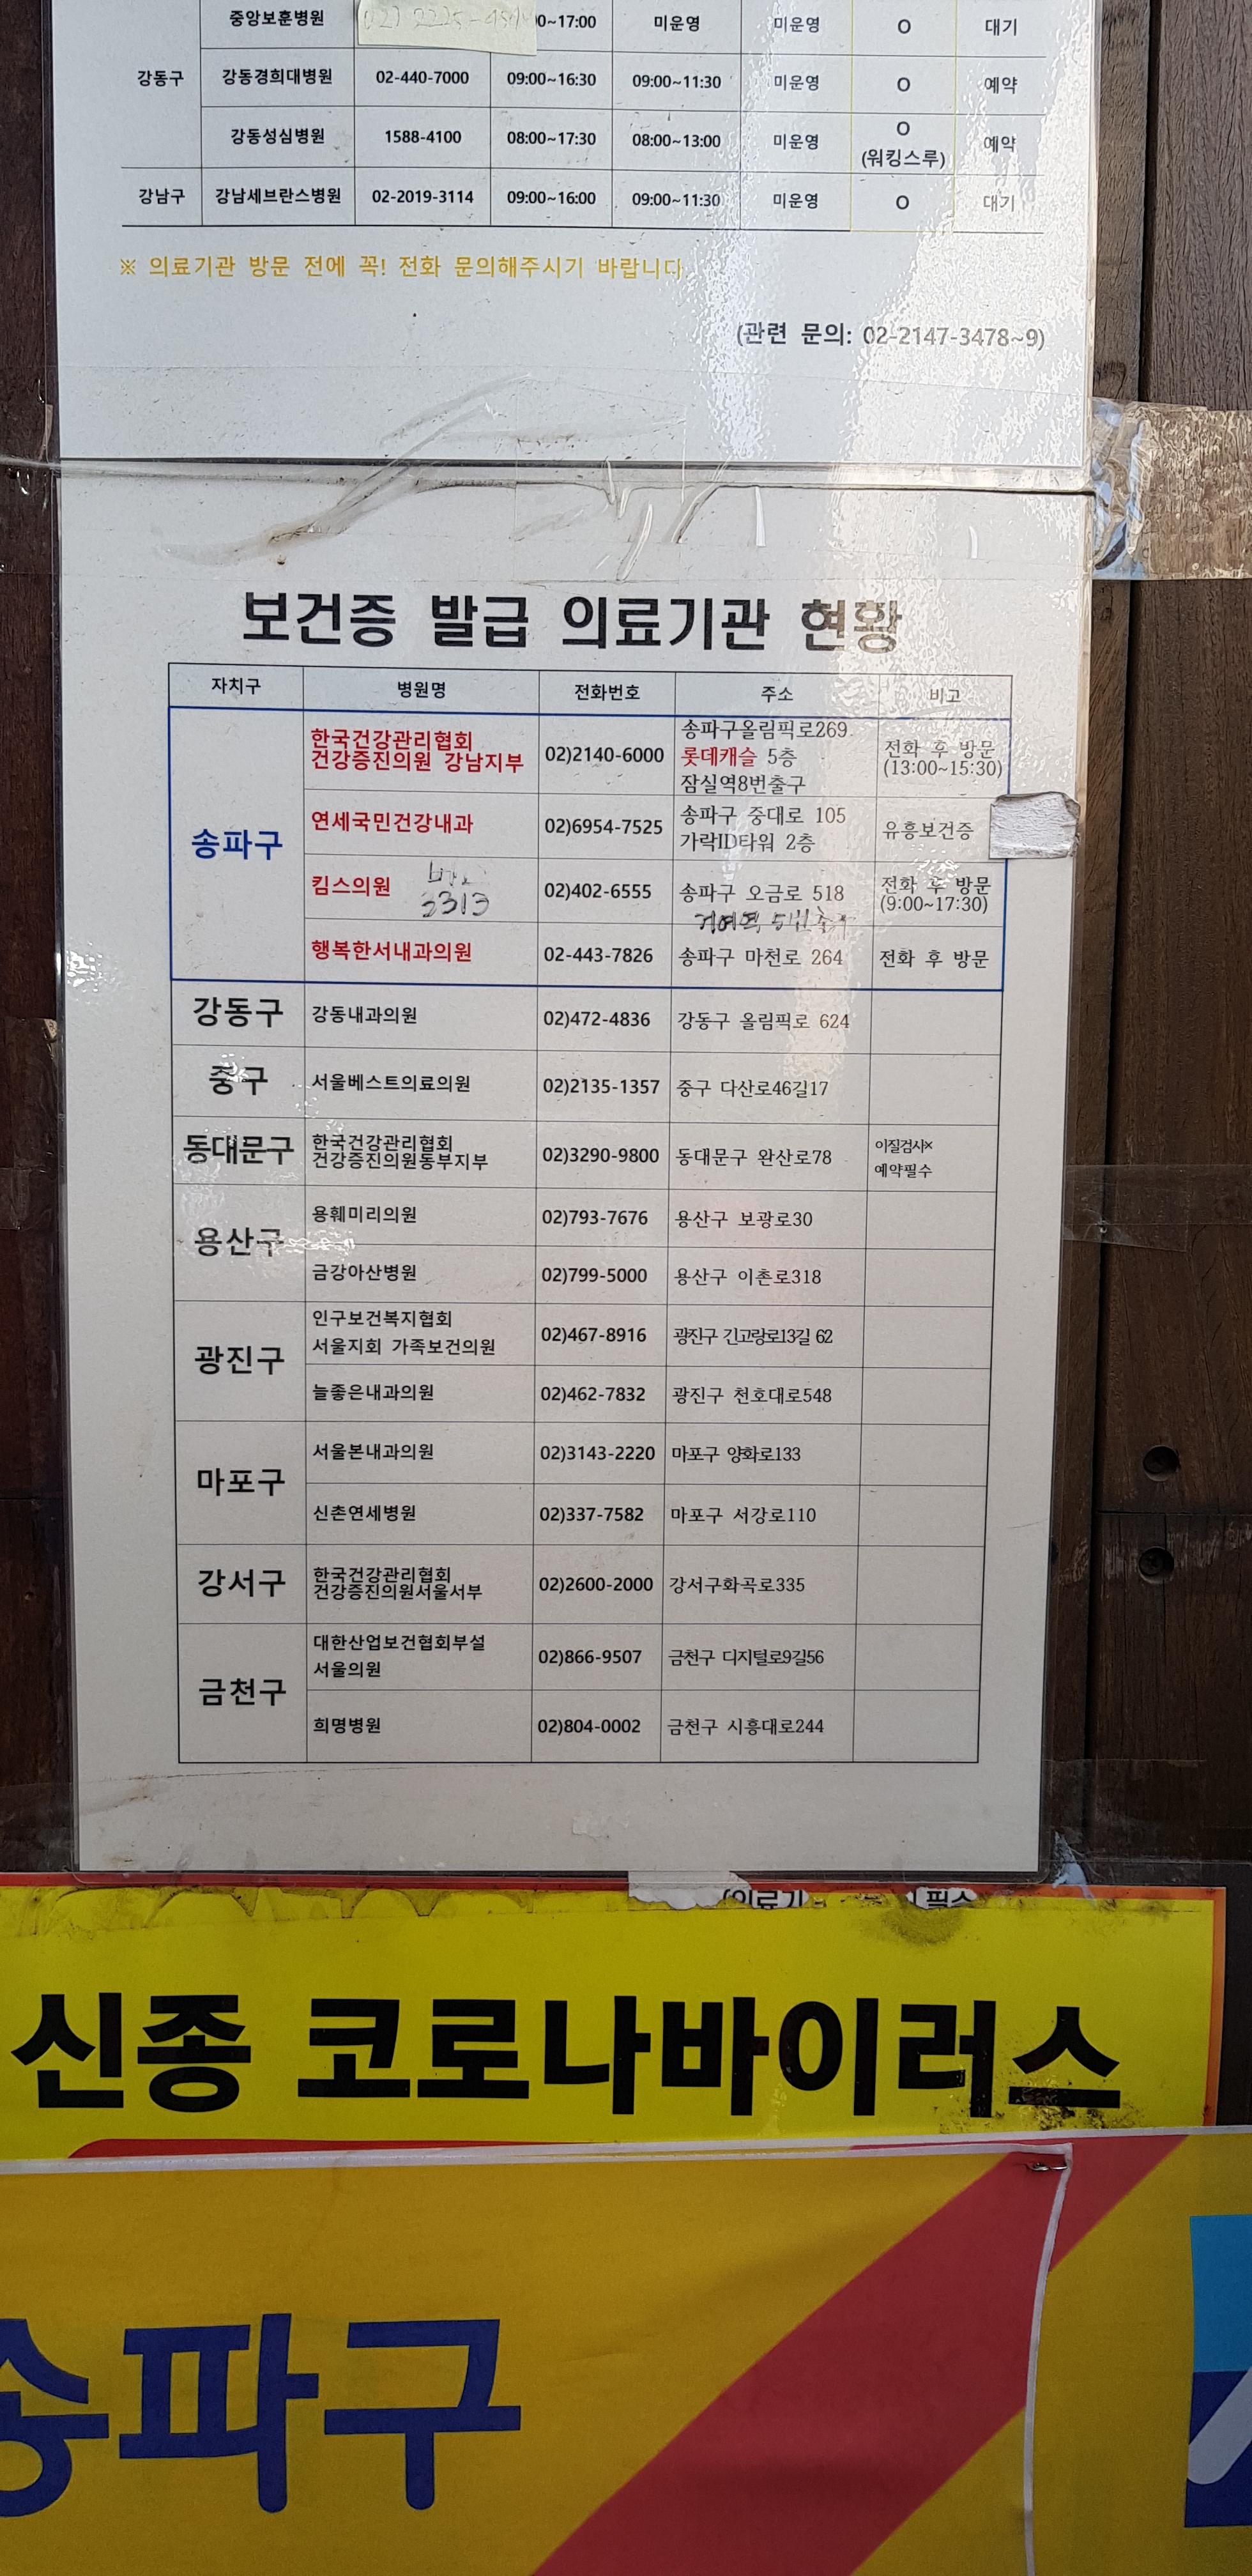 중앙보훈병원 0~17:00 미운영 미운영 O 대기
강동구 강동경희대병원 02-440-7000 09:00~16:30 09:00~11:30 미운영 O 예약
강동성심병원 1588-4100 08:00~17:30 08:00~13:00 미운영 O (워킹스루) 예약
강남구 강남세브란스병원 02-2019-3114 09:00~16:00 09:00~11:30 미운영 O 대기
※ 의료기관 방문 전에 꼭! 전화 문의해주시기 바랍니다
(관련 문의: 02-2147-3478~9)
보건증 발급 의료기관 현황
자치구 병원명 전화번호 주소 비고
송파구
한국건강관리협회
건강증진의원 강남지부
02)2140-6000
송파구올림픽로269
롯데캐슬 5층
잠실역8번출구
전화 후 방문
(13:00~15:30)
연세국민건강내과 02)6954-7525
송파구 중대로 105
가락ID타워 2층
유흥보건증
킴스의원
3313
02)402-6555
송파구 오금로 518
전화 후 방문
(9:00~17:30)
행복한서내과의원 02-443-7826 송파구 마천로 264 전화 후 방문
강동구 강동내과의원 02)472-4836 강동구 올림픽로 624
중구 서울베스트의료의원 02)2135-1357 중구 다산로46길17
동대문구
한국건강관리협회
건강증진의원동부지부
02)3290-9800 동대문구 완산로78
이질검사×
예약필수
용산구
용훼미리의원 02)793-7676 용산구 보광로30
금강아산병원 02)799-5000 용산구 이촌로318
광진구
인구보건복지협회
서울지회 가족보건의원
02)467-8916 광진구 긴고랑로13길 62
늘좋은내과의원 02)462-7832 광진구 천호대로548
마포구
서울본내과의원 02)3143-2220 마포구 양화로133
신촌연세병원 02)337-7582 마포구 서강로110
강서구
한국건강관리협회
건강증진의원서울서부
02)2600-2000 강서구화곡로335
금천구
대한산업보건협회부설
서울의원
02)866-9507 금천구 디지털로9길56
희명병원 02)804-0002 금천구 시흥대로244
신종 코로나바이러스
송파구